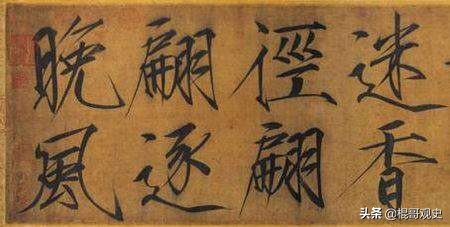 迷香
徑翩
翩逐
晚風
头条 @棍哥观史